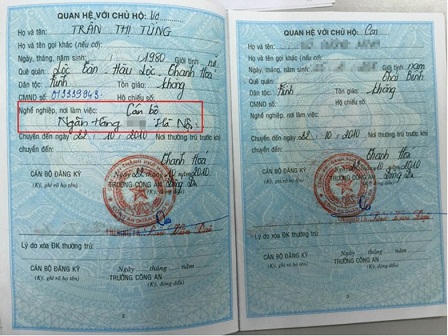 QUAN HỆ VỚI CHỦ HỘ: Vợ
Họ và tên: TRẦN THỊ TÙNG
Họ và tên gọi khác (nếu có):
Ngày, tháng, năm sinh: 1980 Giới tính: nữ
Quê quán: Lộc Tân, Hậu Lộc, Thanh Hóa
Dân tộc: Kinh Tôn giáo: không
CMND số: Hộ chiếu số:
Nghề nghiệp, nơi làm việc: Cán bộ
Ngân hàng Hà Nội
Chuyển đến ngày 22.10.2010 Nơi thường trú trước khi
chuyển đến:
Thanh Hóa
Ngày 22 tháng 10 năm 2010
CÁN BỘ ĐĂNG KÝ
(Ký, ghi rõ họ tên)
TRƯỞNG CÔNG AN
Lý do xóa ĐK thường trú:
Ngày tháng năm
CÁN BỘ ĐĂNG KÝ
(Ký, ghi rõ họ tên)
TRƯỞNG CÔNG AN
(Ký, đóng dấu)
2
QUAN HỆ VỚI CHỦ HỘ: Con
Họ và tên:
Họ và tên gọi khác (nếu có):
Ngày, tháng, năm sinh: Giới tính: nam
Quê quán: Thái Bình
Dân tộc: Kinh Tôn giáo: không
CMND số: Hộ chiếu số:
Nghề nghiệp, nơi làm việc:
Chuyển đến ngày 22.10.2010 Nơi thường trú trước khi
chuyển đến:
Thanh Hóa
CÁN BỘ ĐĂNG KÝ
(Ký, ghi rõ họ tên)
TRƯỞNG CÔNG AN
Lý do xóa ĐK thường trú:
Ngày tháng năm
CÁN BỘ ĐĂNG KÝ
(Ký, ghi rõ họ tên)
TRƯỞNG CÔNG AN
(Ký, đóng dấu)
3